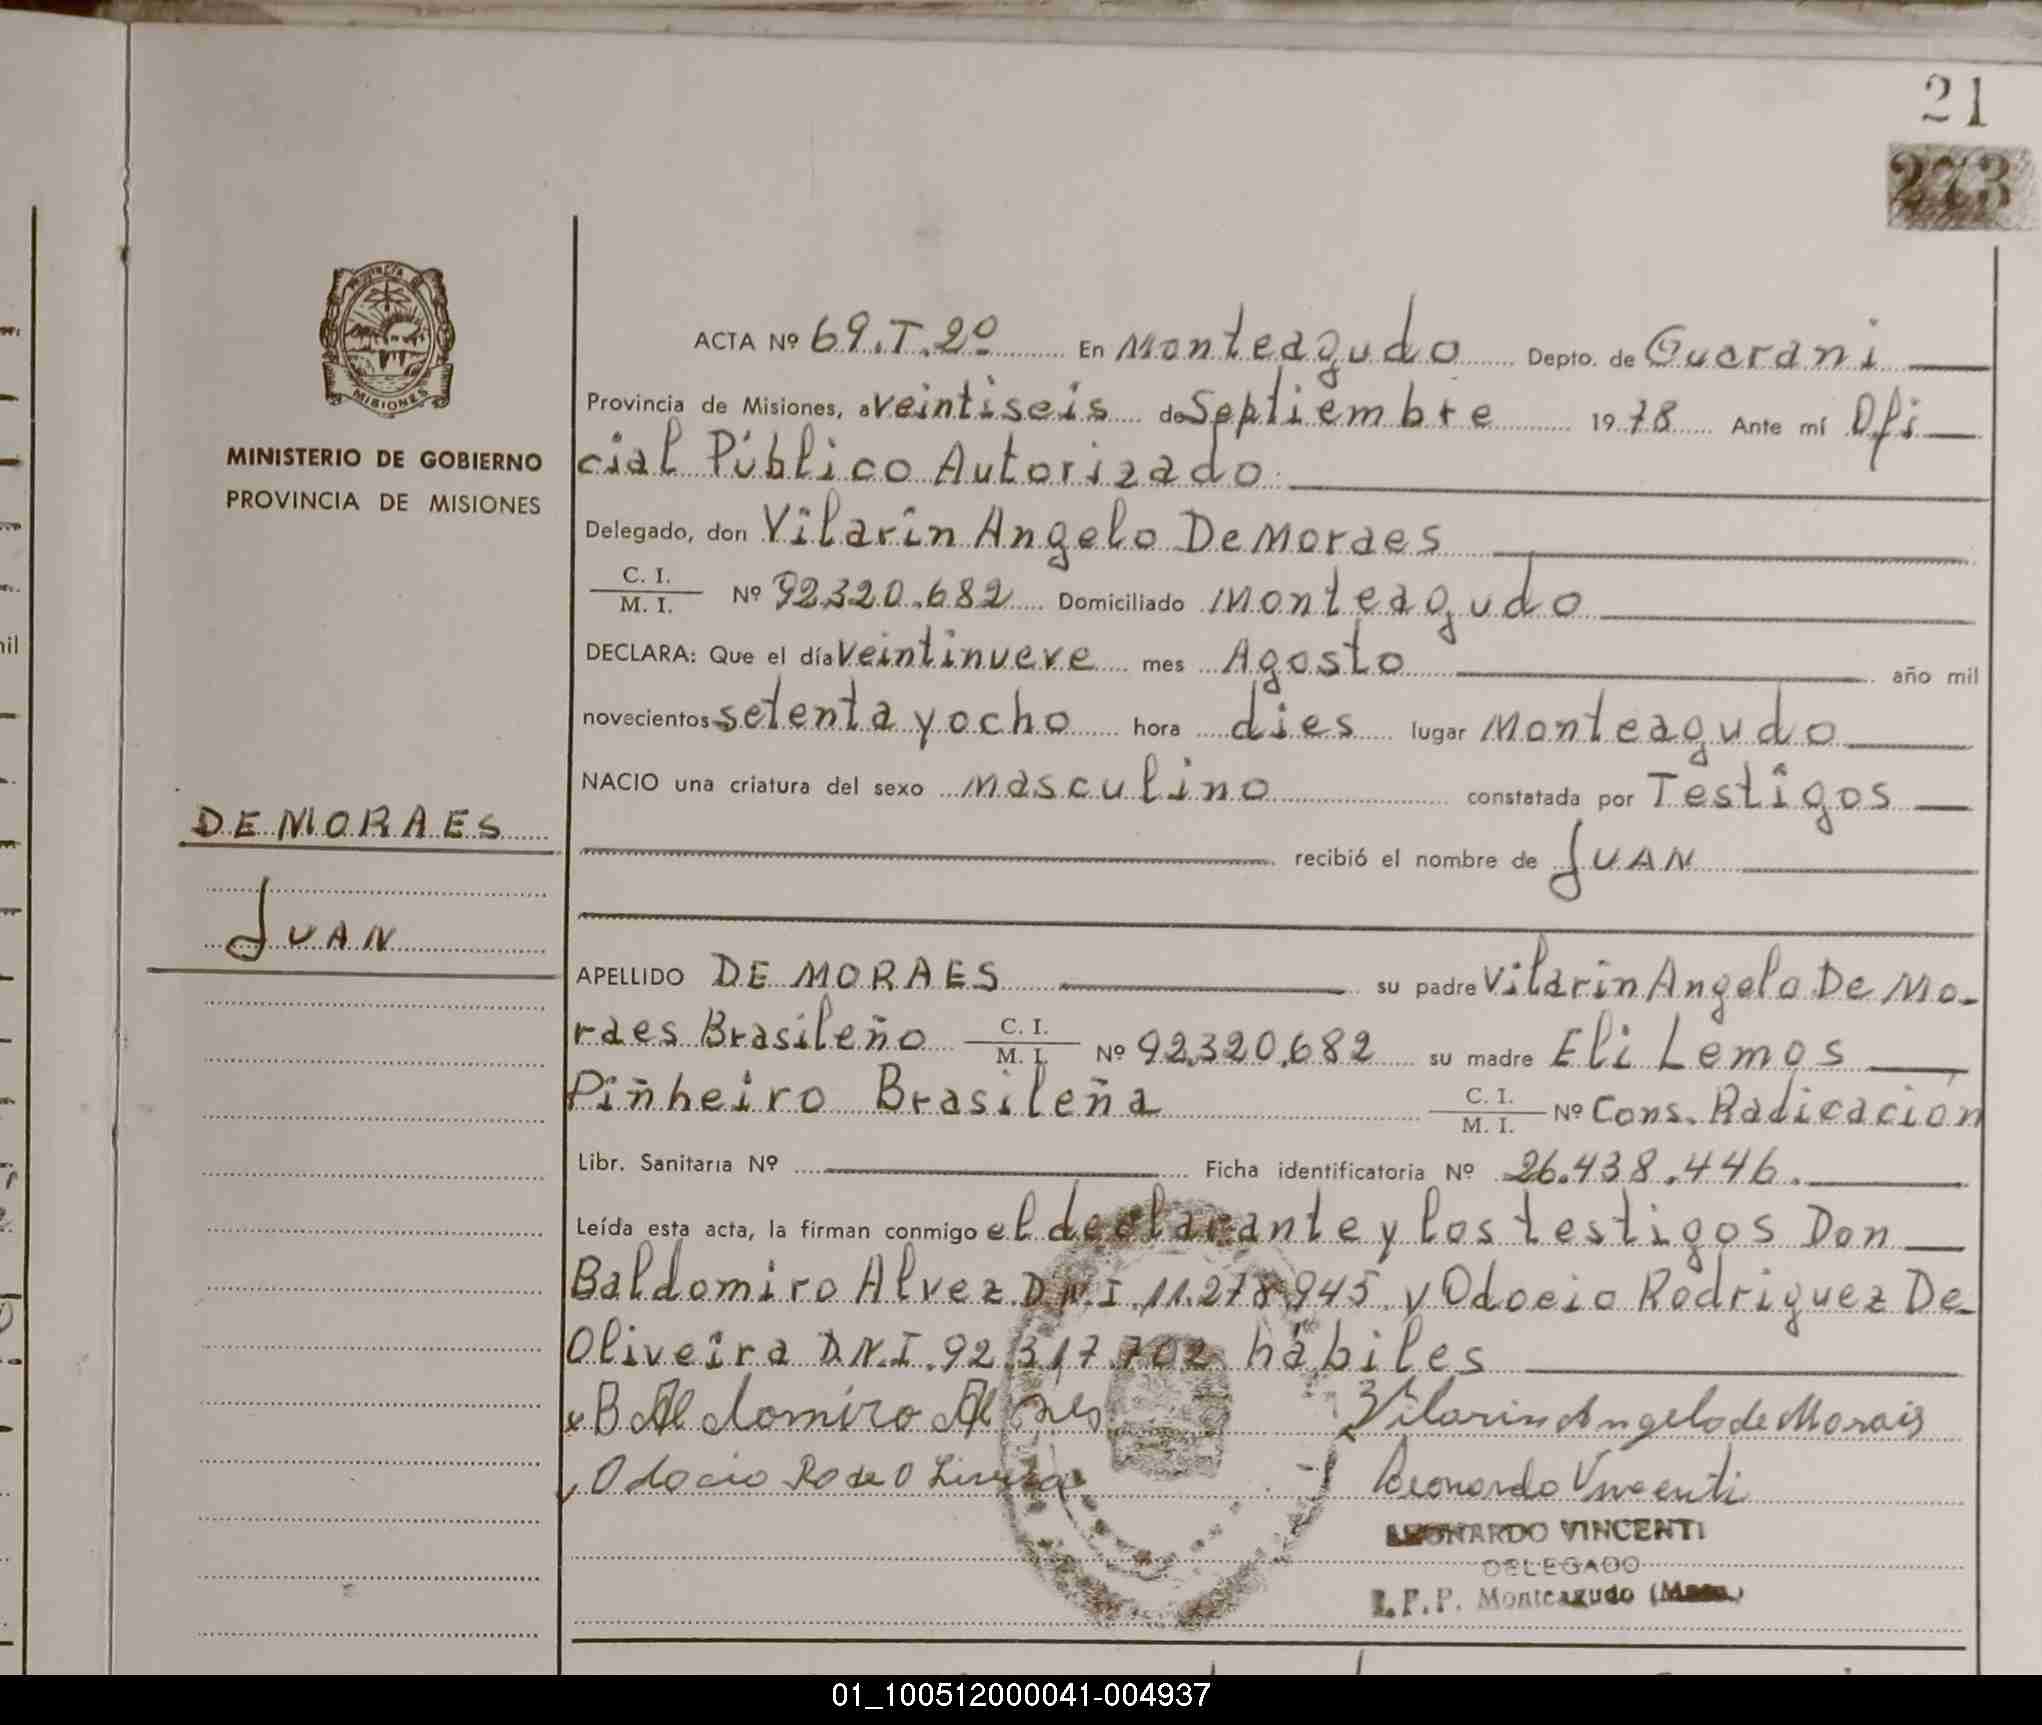 21
273
PROVINCIA DE
MISIONES
MINISTERIO DE GOBIERNO
PROVINCIA DE MISIONES
DE MORAES
JUAN
ACTA Nº 69.T.2º En Monteagudo Depto. de Guarani
Provincia de Misiones, a veintiseis de Septiembre 1978 Ante mí Ofi
cial Público Autorizado
Delegado, don Vilarin Angelo De Moraes
C. I. / M. I. Nº 92.320.682 Domiciliado Monteagudo
DECLARA: Que el día veintinueve mes Agosto año mil
novecientos setenta y ocho hora dies lugar Monteagudo
NACIO una criatura del sexo masculino constatada por Testigos
recibió el nombre de JUAN
APELLIDO DE MORAES su padre Vilarin Angelo De Mo-
raes Brasileño C. I. / M. I. Nº 92.320.682 su madre Eli Lemos
Piñheiro Brasileña C. I. / M. I. Nº Cons. Radicación
Libr. Sanitaria Nº Ficha identificatoria Nº 26.438.446.
Leída esta acta, la firman conmigo el declarante y los testigos Don
Baldomiro Alvez D.N.I. 11.278.945 y Odocio Rodriguez De
Oliveira D.N.I. 92.317.702 hábiles
Vilarin Angelo de Morais
Odocio Ro de O
Leonardo Vincenti
LEONARDO VINCENTI
DELEGADO
Monteagudo
01_100512000041-004937